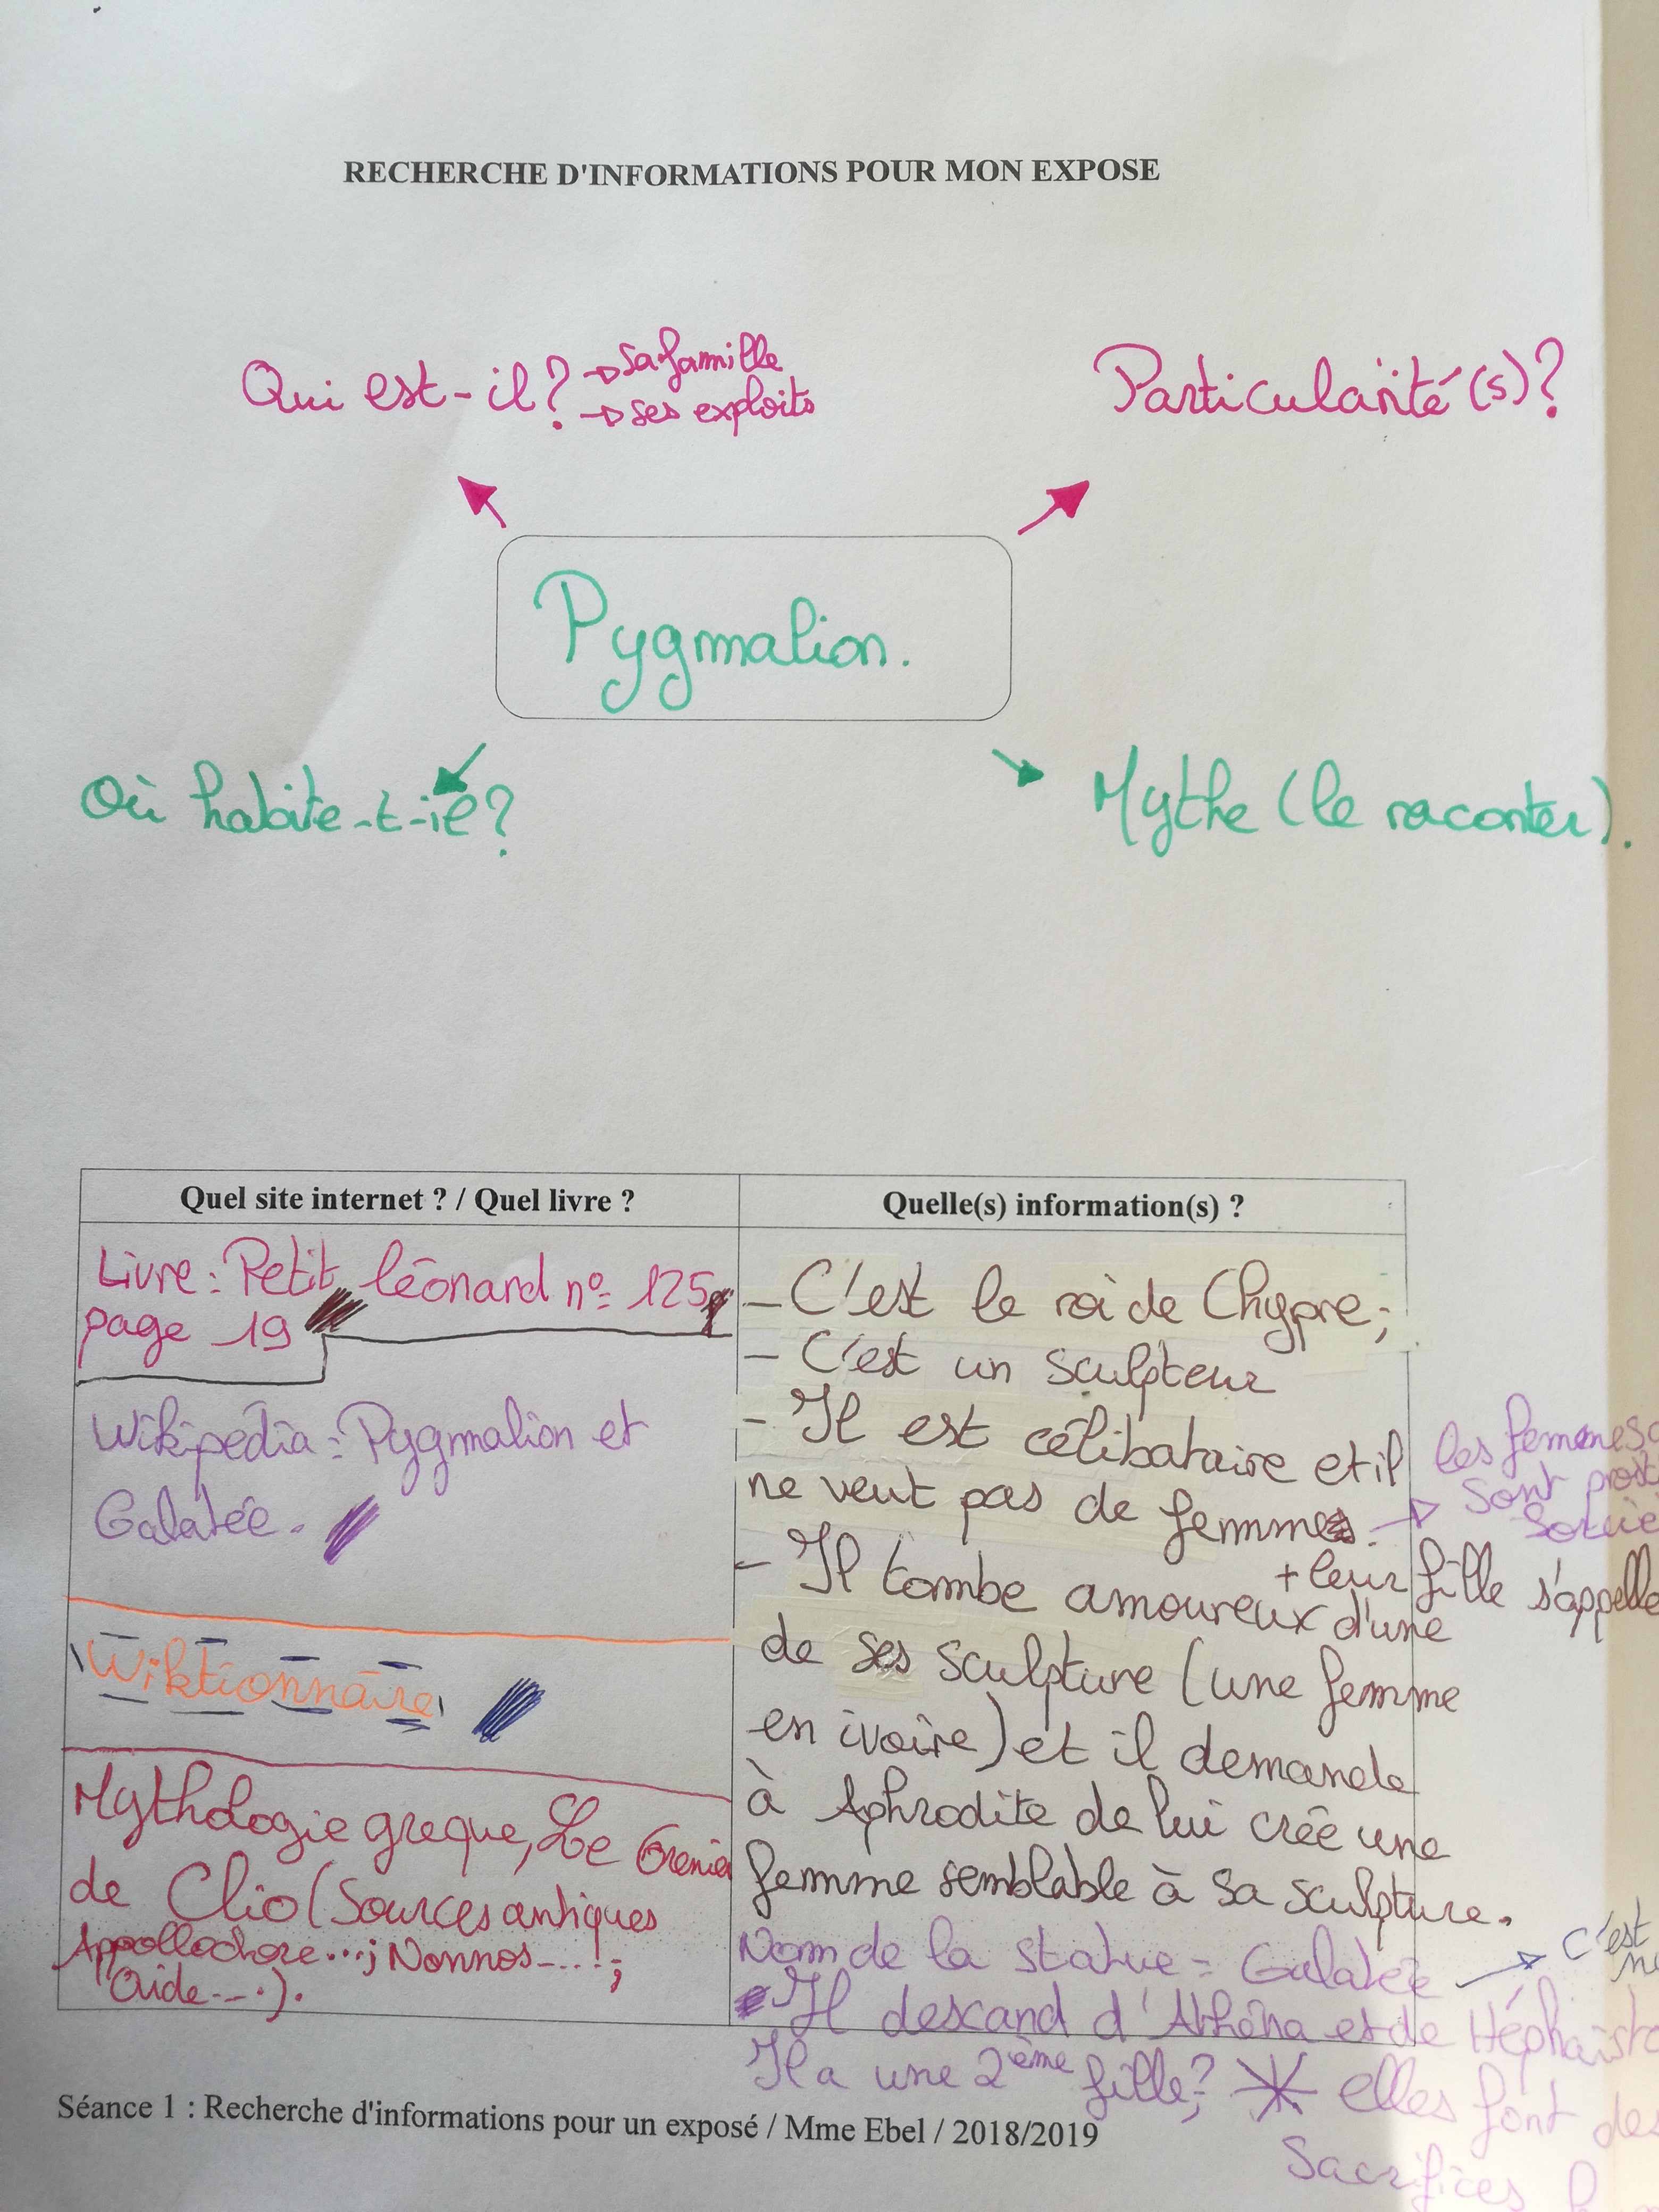 RECHERCHE D'INFORMATIONS POUR MON EXPOSE
Qui est-il? → sa famille
→ ses exploits
Particularité(s)?
Pygmalion.
Où habite-t-il?
Mythe (le raconter).
Quel site internet ? / Quel livre ?
Livre: Petit léonard n° 125
page 19
Wikipédia: Pygmalion et
Galatée.
Wiktionnaire
Mythologie greque, Le Grenier
de Clio (Sources antiques
Appollodore...; Nonnos....;
Ovide...).
Quelle(s) information(s) ?
- C'est le roi de Chypre;
- C'est un sculpteur
- Il est célibataire et il
ne veut pas de femmes. →
les femmes
sont
- Il tombe amoureux d'une
+ leur fille s'appelle
de ses sculpture (une femme
en ivoire) et il demande
à Aphrodite de lui crée une
femme semblable à sa sculpture.
Nom de la statue = Galatée → c'est
Il descand d'Athéna et de
Il a une 2ème fille? * elles font des
Sacrifices
Séance 1 : Recherche d'informations pour un exposé / Mme Ebel / 2018/2019